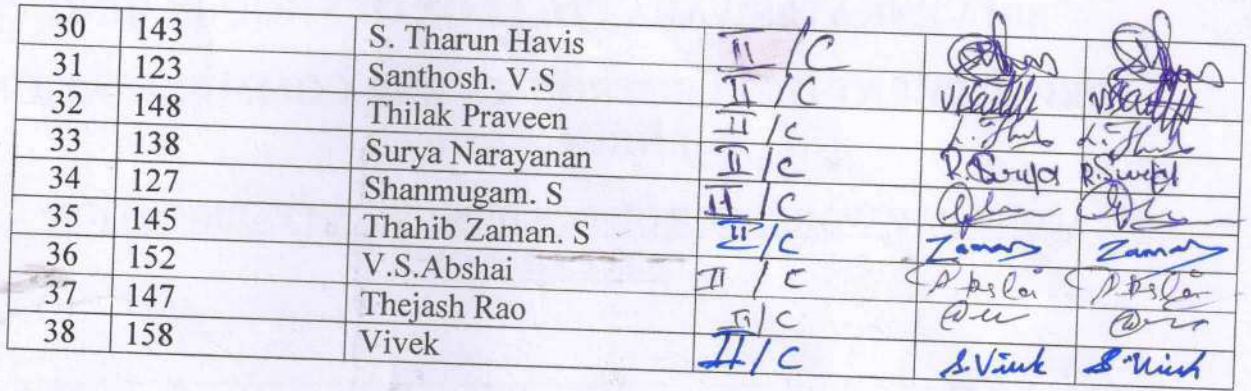 30 143 S. Tharun Havis II/C
31 123 Santhosh. V.S II/C
32 148 Thilak Praveen II/C
33 138 Surya Narayanan II/C
34 127 Shanmugam. S II/C
35 145 Thahib Zaman. S II/C Zaman Zaman
36 152 V.S.Abshai II/C
37 147 Thejash Rao II/C
38 158 Vivek II/C S.Vivek S.Vivek